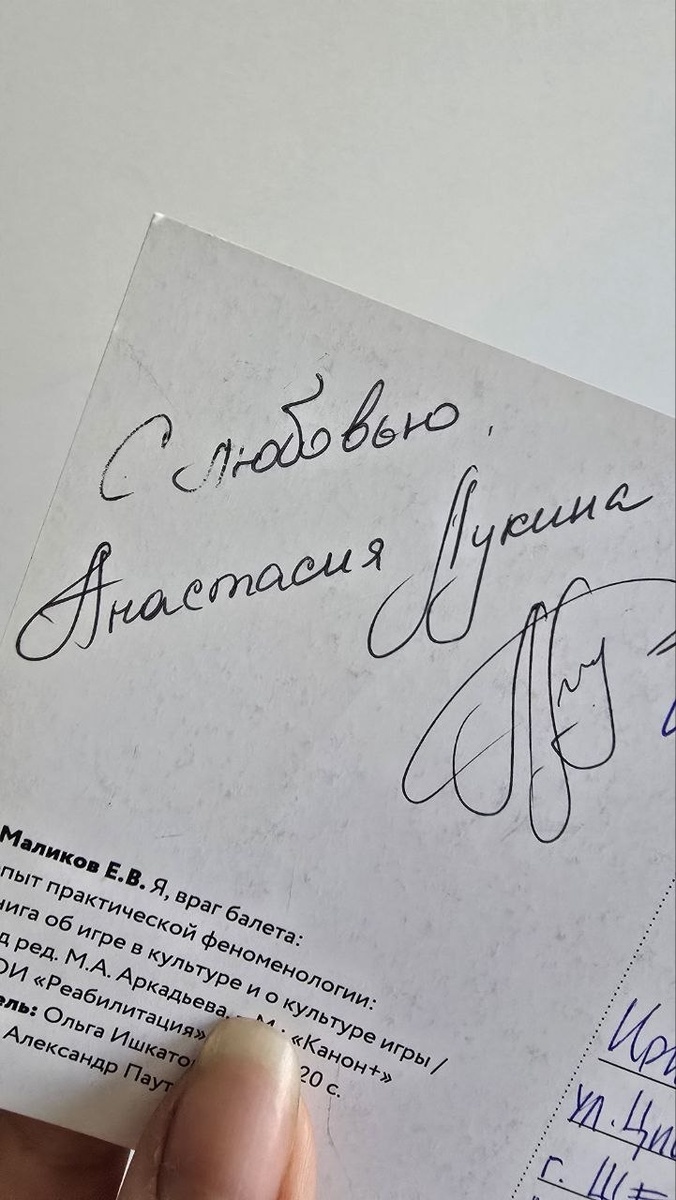 С любовью,
Анастасия Лукина
Маликов Е.В. Я, враг балета:
пыт практической феноменологии:
нига об игре в культуре и о культуре игры /
д ред. М.А. Аркадьева. М.: «Канон+»
ОИ «Реабилитация» 20 с.
ель: Ольга Ишкато
Александр Паут
ул.
г.